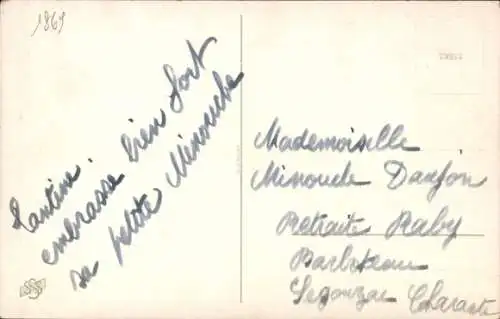 1869
embrasse bien fort
sa petite Minouche
Mademoiselle
Minouche
Retraite Raby
Segonzac Charente